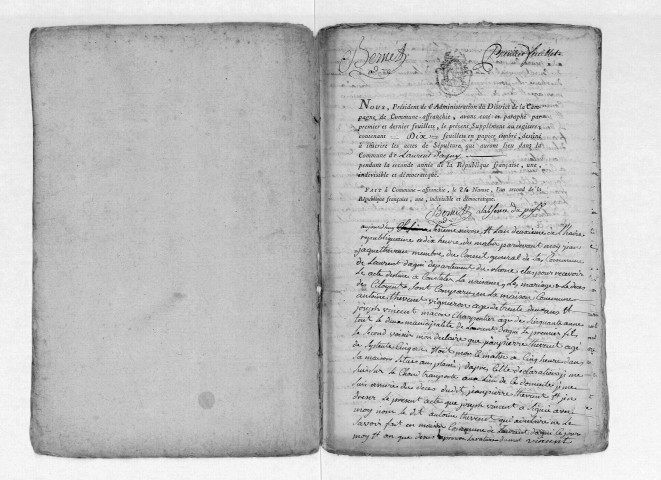 Bernet
Premier feuillet
Nous, Président de l'Administration du District de la Cam-
pagne de Commune-affranchie, avons coté et paraphé par
premier et dernier feuillets, le présent Supplément au registre,
contenant Dix feuillets en papier timbré, destiné
à inscrire les actes de Sépulture, qui auront lieu dans la
Commune de Laurent Dagny
pendant la seconde année de la République française, une,
indivisible et démocratique.
Fait à Commune-affranchie, le 24 Nivose, l'an second de la
République française, une, indivisible et démocratique.
Bernet
aujourdhuy nivose l'an deuxieme de l'haire
republiquaine a dix heure du matin pardevant moy jean
jaque thevenet membre du Conseil general de la Commune
de Laurent dagni departement du rhone elu pour recevoir
le acte destiné a Constater la naissance, le mariage le deces
des Citoyens Sont Comparu en la maison Commune
antoine thevenet vigneron age de trente deux ans et
joseph vincent Charpentier age de Cinquante anne
tout le deux municipalité de Laurent dagni le premier fils
le Second voisin mon declare que jean pierre thevenet agé
de Septente Cinq ans est mort a Cinq heure dans
la maison Situe au plani, dapre Cette declaration je me
suis sur le Chan transporte au lieu de Ce domicile je me
suis assurée du deces dudit jean pierre thevenet et jen
dresse le present acte que joseph vincent a Signe avec
moy non le dit antoine thevenet qui a declare ne le
savoir fait en maison Commune de Laurent dagni Ce jour
moy et an que dessus vincent